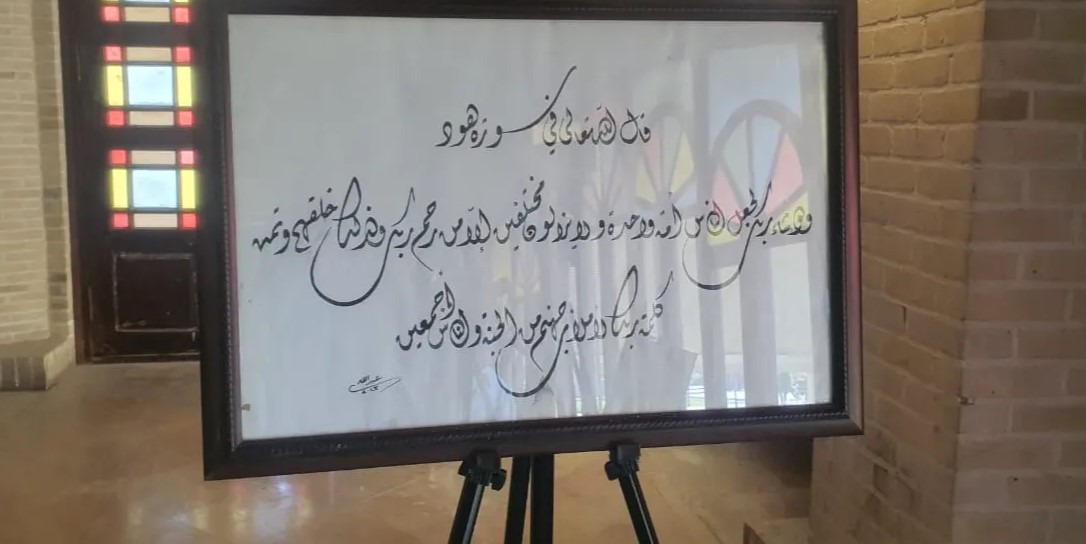 قال الله تعالى في سورة هود
ولو شاء ربك لجعل الناس أمة واحدة ولا يزالون مختلفين إلا من رحم ربك ولذلك خلقهم وتمت
كلمة ربك لأملأن جهنم من الجنة والناس أجمعين
عبدالله